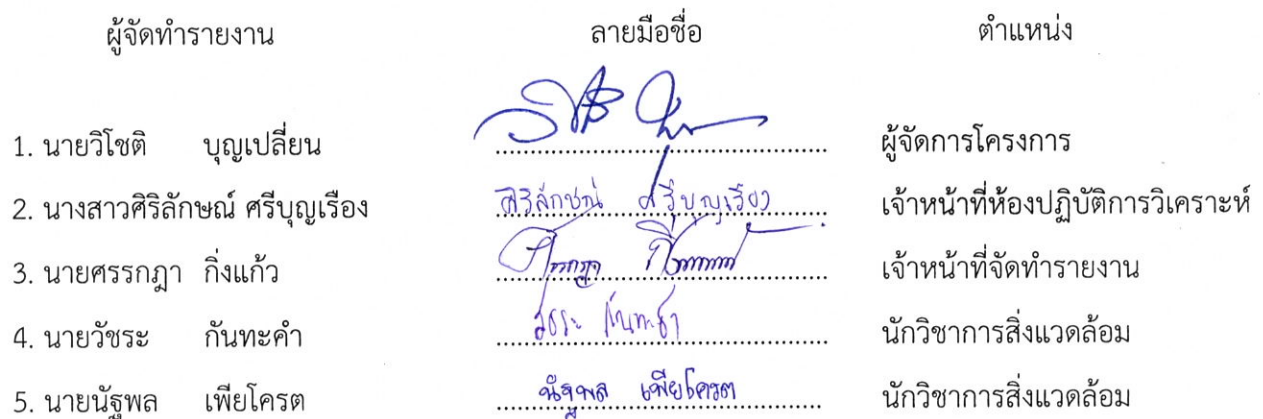 ผู้จัดทำรายงาน ลายมือชื่อ ตำแหน่ง
1. นายวิโชติ บุญเปลี่ยน ผู้จัดการโครงการ
2. นางสาวศิริลักษณ์ ศรีบุญเรือง ศิริลักษณ์ ศรีบุญเรือง เจ้าหน้าที่ห้องปฏิบัติการวิเคราะห์
3. นายศรรกฎา กิ่งแก้ว ศรรกฎา เจ้าหน้าที่จัดทำรายงาน
4. นายวัชระ กันทะคำ วัชระ กันทะคำ นักวิชาการสิ่งแวดล้อม
5. นายนัฐพล เพียโครต นัฐพล เพียโครต นักวิชาการสิ่งแวดล้อม